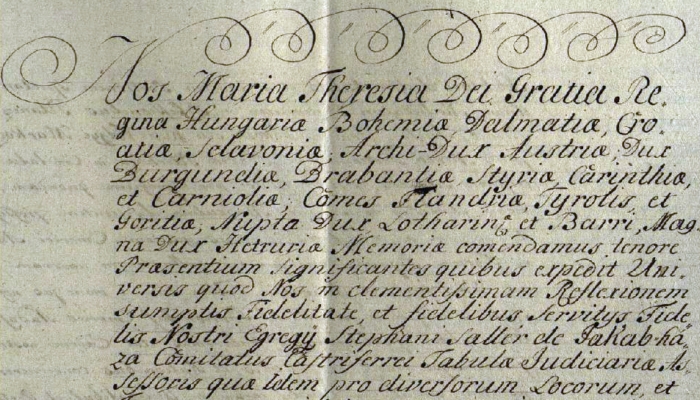 Nos Maria Theresia Dei Gratia Re-
gina Hungariæ Bohemiæ, Dalmatiæ, Cro-
atiæ, Sclavoniæ, Archi-Dux Austriæ, Dux
Burgundiæ, Brabantiæ Styriæ, Carinthiæ
et Carnioliæ, Comes Flandriæ, Tyrolis, et
Goritiæ, Nupta Dux Lotharing et Barri, Mag-
na Dux Hetruriæ Memoriæ comendamus tenore
Præsentium Significantes quibus expedit Uni-
versis quod Nos in clementissimam Reflexionem
sumptis Fidelitate, et fidelibus servitys Fide-
lis Nostri Egregy Stephani Saller de Jakabhá-
za Comitatus Castriferrei Tabulæ Judiciariæ As-
sessoris quæ Idem pro diversorum Locorum, et